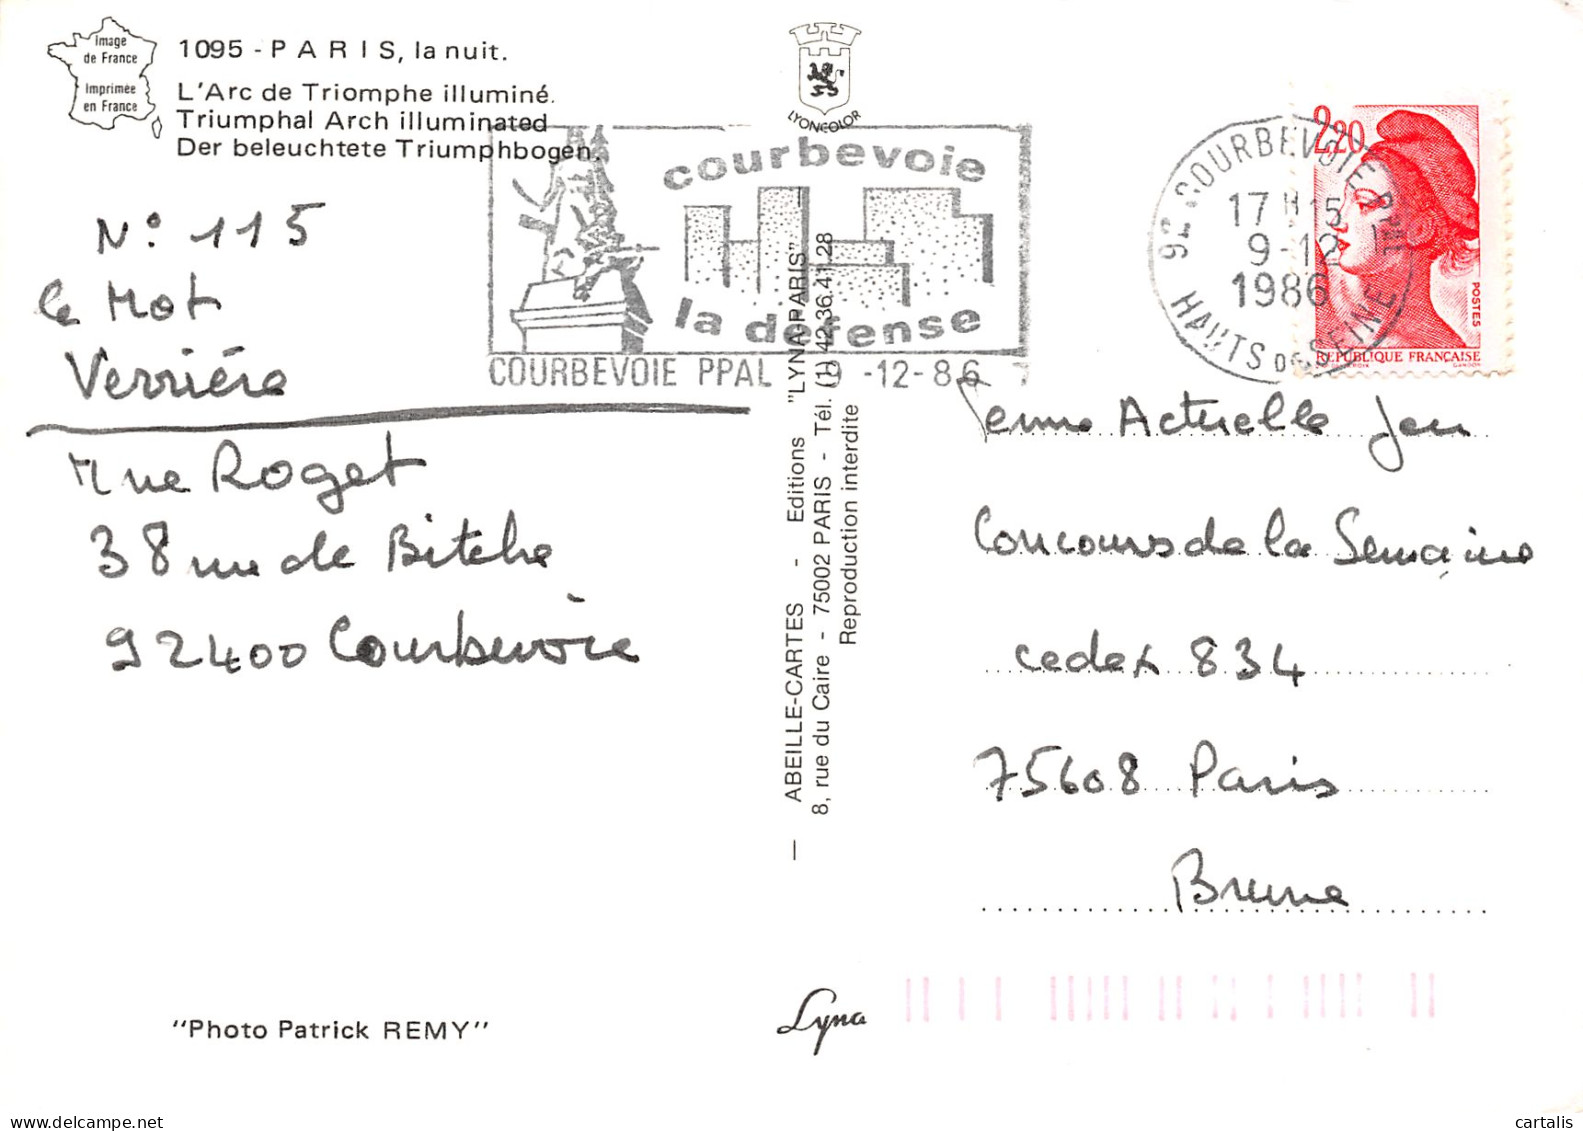 Image
de France
Imprimée
en France
1095 - PARIS, la nuit.
L'Arc de Triomphe illuminé.
Triumphal Arch illuminated
Der beleuchtete Triumphbogen.
LYONCOLOR
courbevoie
la defense
COURBEVOIE PPAL 9 -12-86
92 COURBEVOIE PPAL
17 H 15
9-12
1986
HAUTS DE SEINE
2,20
POSTES
REPUBLIQUE FRANÇAISE
N° 115
le Mot
Verrière
Mue Roget
38 rue de Bitche
92400 Courbevoie
ABEILLE-CARTES - Editions "LYNA-PARIS"
8, rue du Caire - 75002 PARIS - Tél. (1) 42.36.41.28
Reproduction interdite
Femme Actuelle Jeu
Concours de la Semaine
cedex 834
75608 Paris
Brune
"Photo Patrick REMY"
Lyna
delcampe.net
cartalis